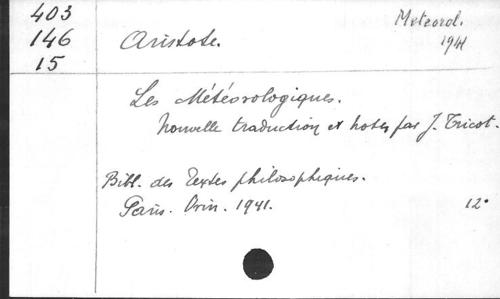 403
146
15
Aristote.
Meteorol.
1941
Les Météorologiques.
Nouvelle traduction et notes par J. Tricot.
Bibl. des Textes philosophiques.
Paris. Vrin. 1941.
12°